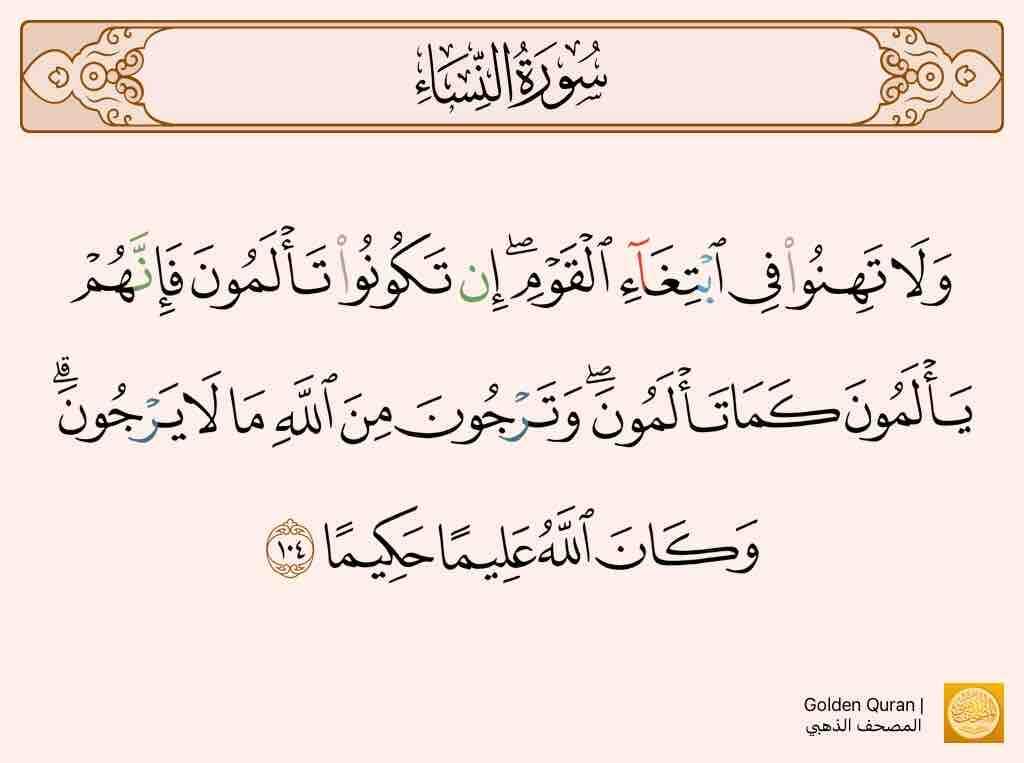 سُورَةُ النِّسَاءِ
وَلَا تَهِنُوا۟ فِى ٱبْتِغَآءِ ٱلْقَوْمِ ۖ إِن تَكُونُوا۟ تَأْلَمُونَ فَإِنَّهُمْ
يَأْلَمُونَ كَمَا تَأْلَمُونَ ۖ وَتَرْجُونَ مِنَ ٱللَّهِ مَا لَا يَرْجُونَ ۗ
وَكَانَ ٱللَّهُ عَلِيمًا حَكِيمًا ١٠٤
Golden Quran |
المصحف الذهبي